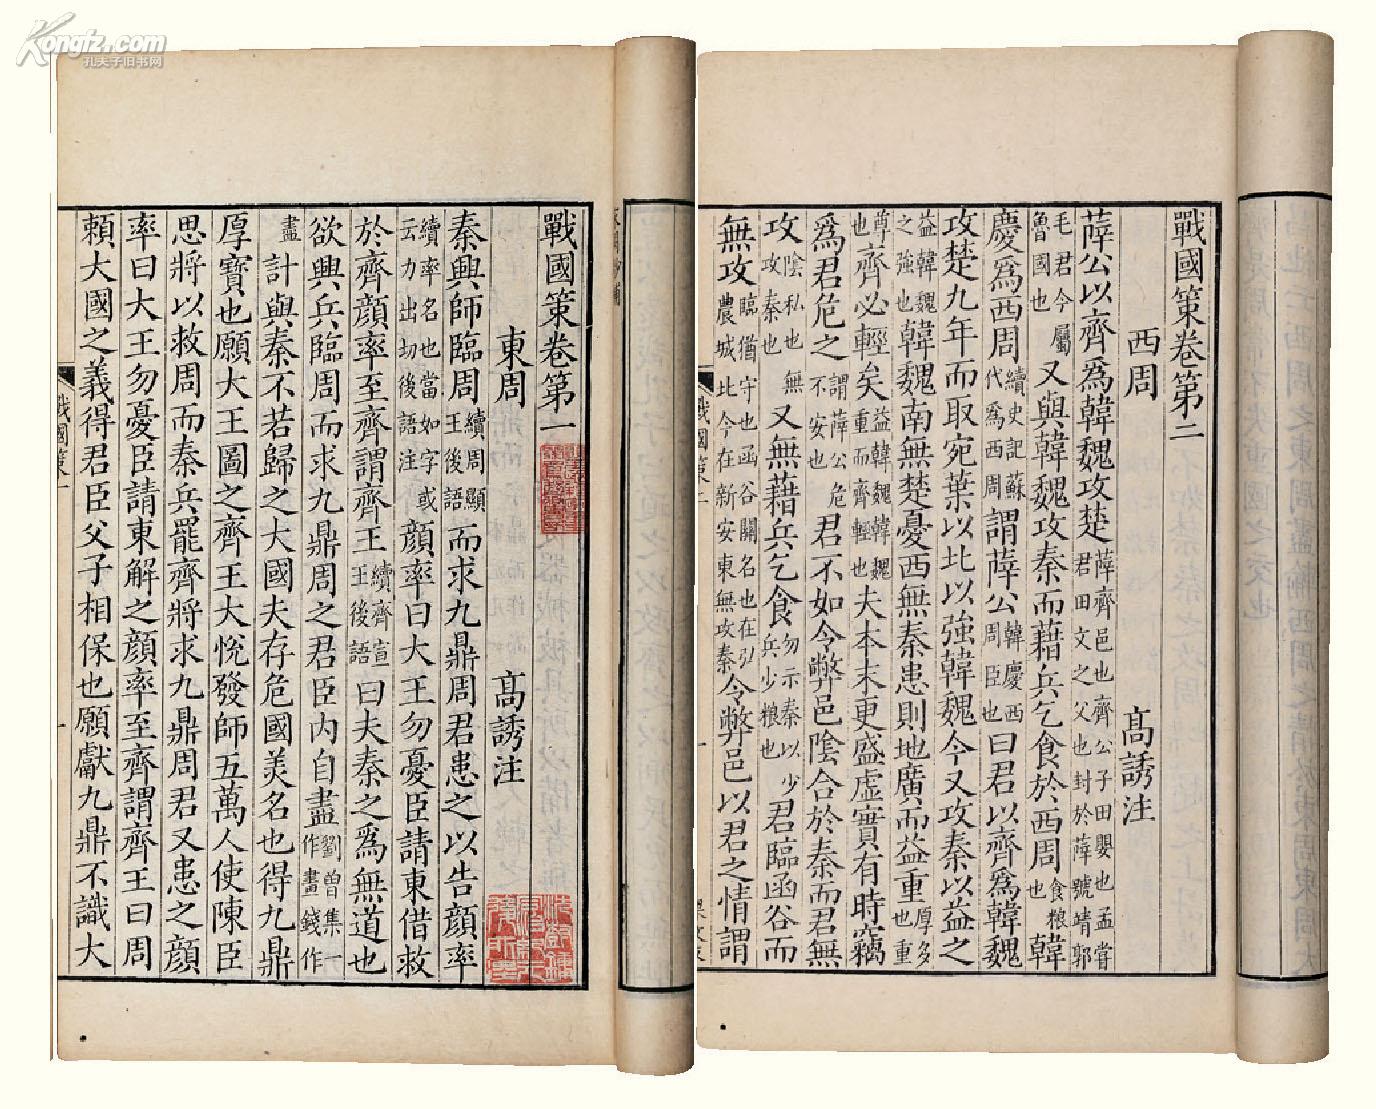 Kongfz.com
孔夫子旧书网
戰國策卷第一
東周
高誘注
秦興師臨周續周顯王後語而求九鼎周君患之以告顔率
續率名也當如字或云力出切後語注顔率曰大王勿憂臣請東借救
於齊顔率至齊謂齊王續齊宣王後語曰夫秦之爲無道也
欲興兵臨周而求九鼎周之君臣内自盡劉曾集一作畫錢作
盡計與秦不若歸之大國夫存危國美名也得九鼎
厚寶也願大王圖之齊王大悅發師五萬人使陳臣
思將以救周而秦兵罷齊將求九鼎周君又患之顔
率曰大王勿憂臣請東解之顔率至齊謂齊王曰周
頼大國之義得君臣父子相保也願獻九鼎不識大
戰國策一
戰國策卷第二
西周
高誘注
薛公以齊爲韓魏攻楚薛齊邑也齊公子田嬰也孟嘗君田文之父也封於薛號靖郭
毛君今屬魯國也又與韓魏攻秦而藉兵乞食於西周食粮也韓
慶爲西周續史記蘇代爲西周謂薛公韓慶西周臣也曰君以齊爲韓魏
攻楚九年而取宛葉以北以強韓魏今又攻秦以益之
益韓魏之強也韓魏南無楚憂西無秦患則地廣而益重厚多也重
尊也齊必輕矣益韓魏韓魏重而齊輕也夫本末更盛虚實有時竊
爲君危之謂薛公危不安也君不如令弊邑陰合於秦而君無
攻陰私也無攻秦也又無藉兵乞食勿示秦以少兵少粮也君臨函谷而
無攻臨猶守也函谷關名也在弘農城北今在新安東無攻秦令弊邑以君之情謂
戰國策二